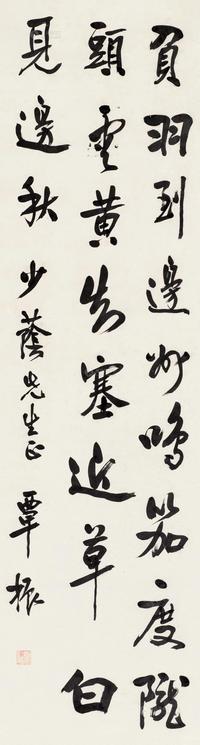 負羽到邊州鳴笳度隴
頭雲黃知塞近草白
見邊秋 少蔭先生正 覃振